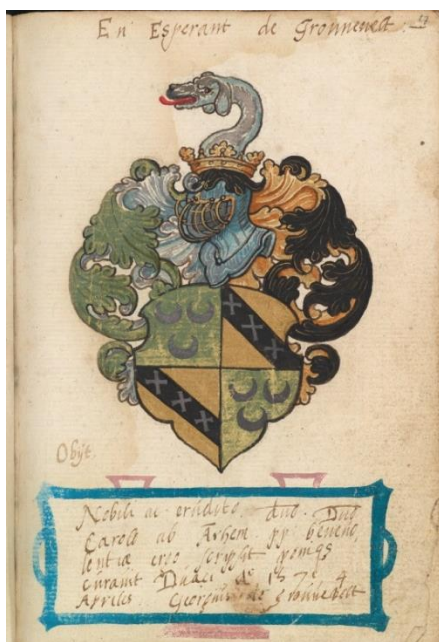 En Esperant de Gronnevelt.
Obijt
Nobili ac erudito dno. Dno
Carolo ab Arhem pp benevo
lentiæ ergo scripsit
curavit Duaci
Aprilis Georgius de